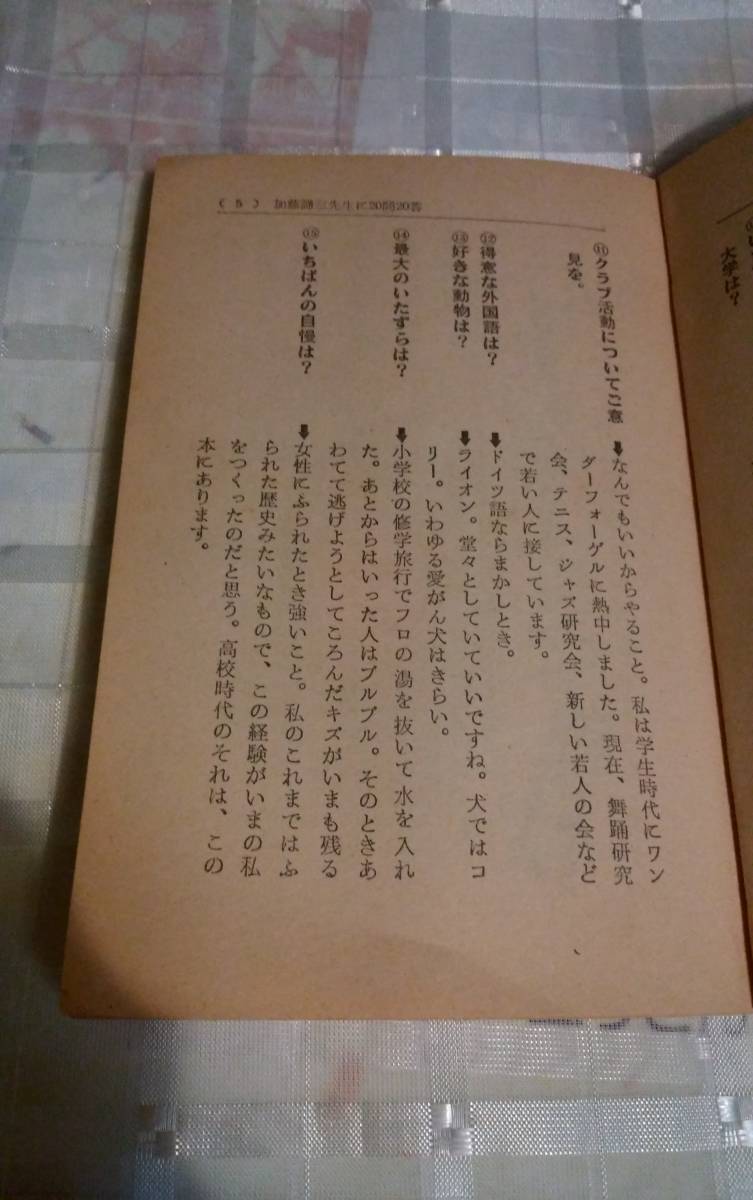 (5) 加藤諦三先生に20問20答
⑪クラブ活動についてご意
見を。
➡なんでもいいからやること。私は学生時代にワン
ダーフォーゲルに熱中しました。現在、舞踊研究
会、テニス、ジャズ研究会、新しい若人の会など
で若い人に接しています。
⑫得意な外国語は?
➡ドイツ語ならまかしとき。
⑬好きな動物は?
➡ライオン。堂々としていていいですね。犬ではコ
リー。いわゆる愛がん犬はきらい。
⑭最大のいたずらは?
➡小学校の修学旅行でフロの湯を抜いて水を入れ
た。あとからはいった人はブルブル。そのときあ
わてて逃げようとしてころんだキズがいまも残る
⑮いちばんの自慢は?
➡女性にふられたとき強いこと。私のこれまではふ
られた歴史みたいなもので、この経験がいまの私
をつくったのだと思う。高校時代のそれは、この
本にあります。
大学は?